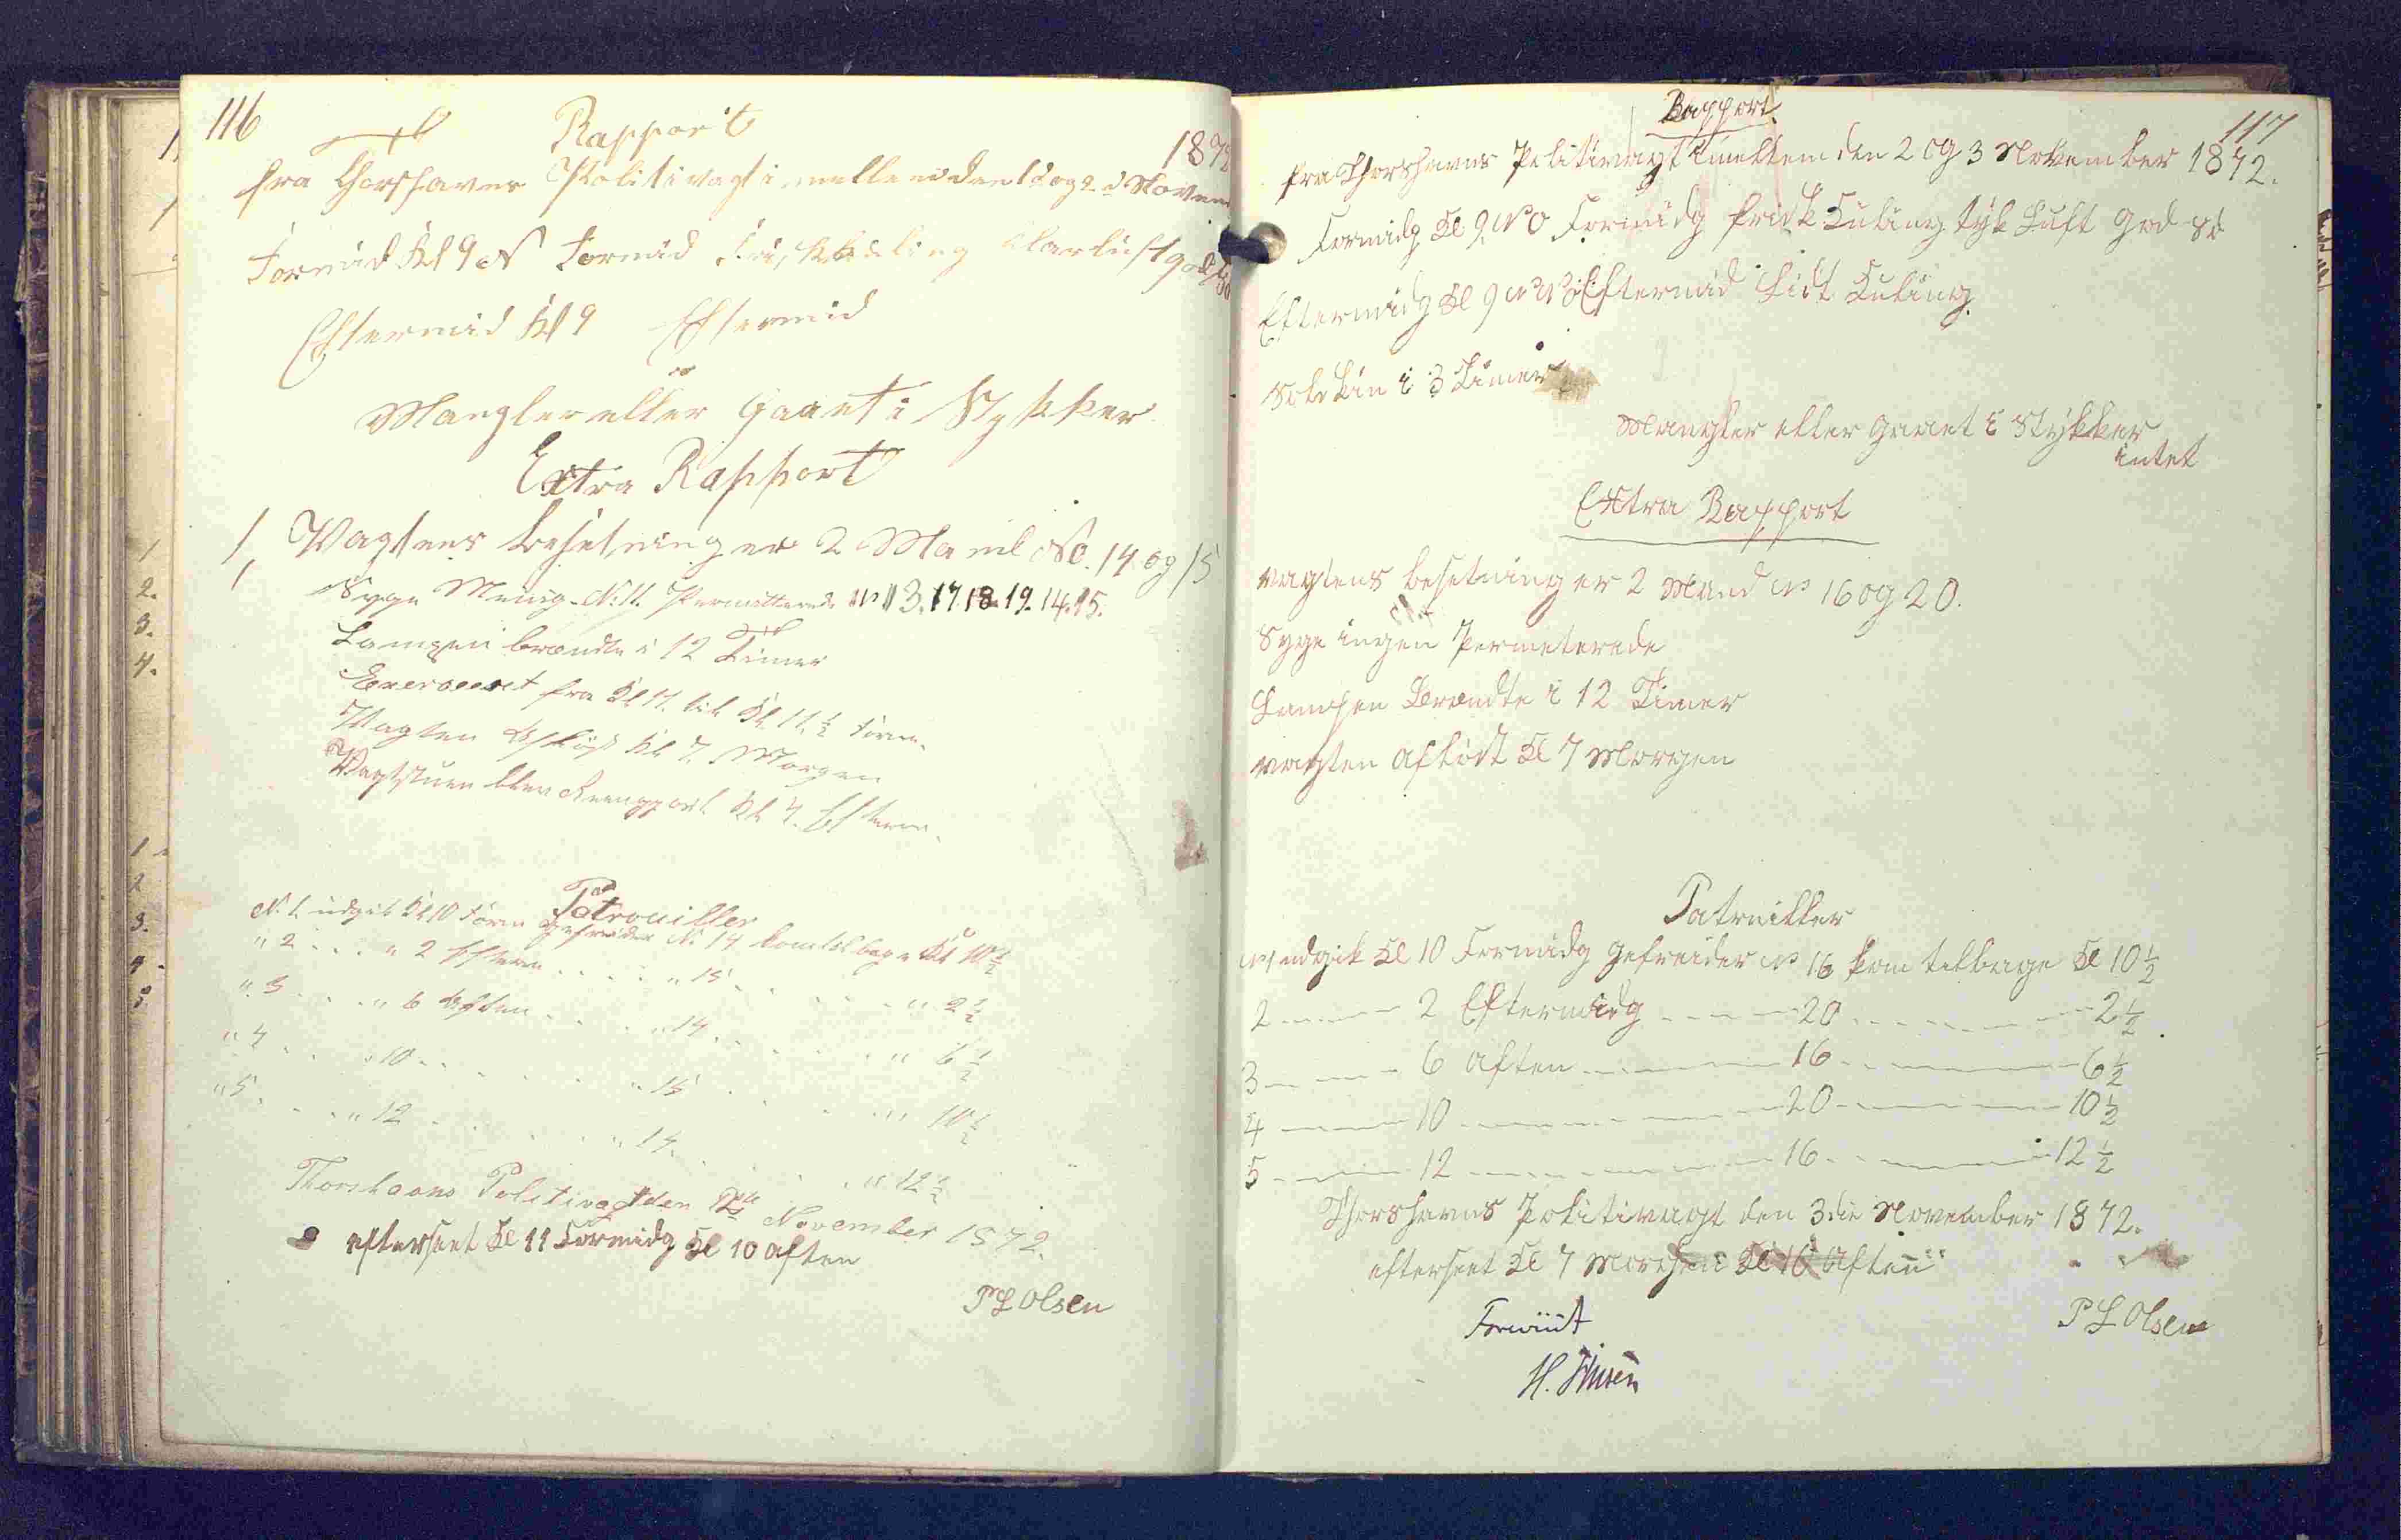 116
Rapport
1872
fra Thorshavns Politivagt imellem den 1 og 2 d Novem
Formid Kl 9 N Formid Frisk Kuling Klar Luft god Sö
Eftermid Kl 9 Eftermid
Mangler eller Gaaet i Stykker
Extra Rapport
1, Vagtens besetning er 2 Mand No. 14 og 15
Syge Menig N. 11. Permitterede No 13. 17. 18. 19. 14. 15.
Lampen brændte i 12 Timer
Exerseeret fra Kl 11. til Kl. 11 ½ Form.
Vagten Afløst Kl 7. Morgen
Vagtstuen blev Reengjort Kl 4. Efterm.
Patrouiller
N. 1. udgik Kl 10 Form Gefreider N. 14 kom tilbage Kl 10 ½
" 2 . . . " 2 Efterm . . . . " 15 . . . . . " 2 ½
" 3 . . . " 6 Aften . . . . " 14 . . . . . " 6 ½
" 4 . . . " 10 . . . . . " 15 . . . . . " 10 ½
" 5 . . . " 12 . . . . . " 14 . . . . . " 12 ½
Thorshavns Politivagt den 2de November 1872.
efterseet Kl 11 Formidg Kl 10 Aften
P L Olsen
117
Rapport
fra Thorshavns Politivagt imellem den 2 og 3 November 1872.
Formidg Kl 9 NO Formidg frisk Kuling tyk Luft god Sö
Eftermidg Kl 9 Eftermid Lidt Kuling
i 3 Timer
Mangler eller Gaaet i Stykker
intet
Extra Rapport
vagtens besetning er 2 Mand No 16 og 20.
Syge ingen Permeterede
Lampen Brændte i 12 Timer
vagten afløst Kl 7 Morgen
Patruiller
No 1 udgik Kl 10 Formidg gefreider No 16 kom tilbage Kl 10 ½
2 ---- 2 Eftermidg ---- 20 ---- 2 ½
3 ---- 6 aften ---- 16 ---- 6 ½
4 ---- 10 ---- 20 ---- 10 ½
5 ---- 12 ---- 16 ---- 12 ½
Thorshavns Politivagt den 3die November 1872.
efterseet Kl 7 Morgen Kl 10 Aften
P L Olsen
Foreviist
H.